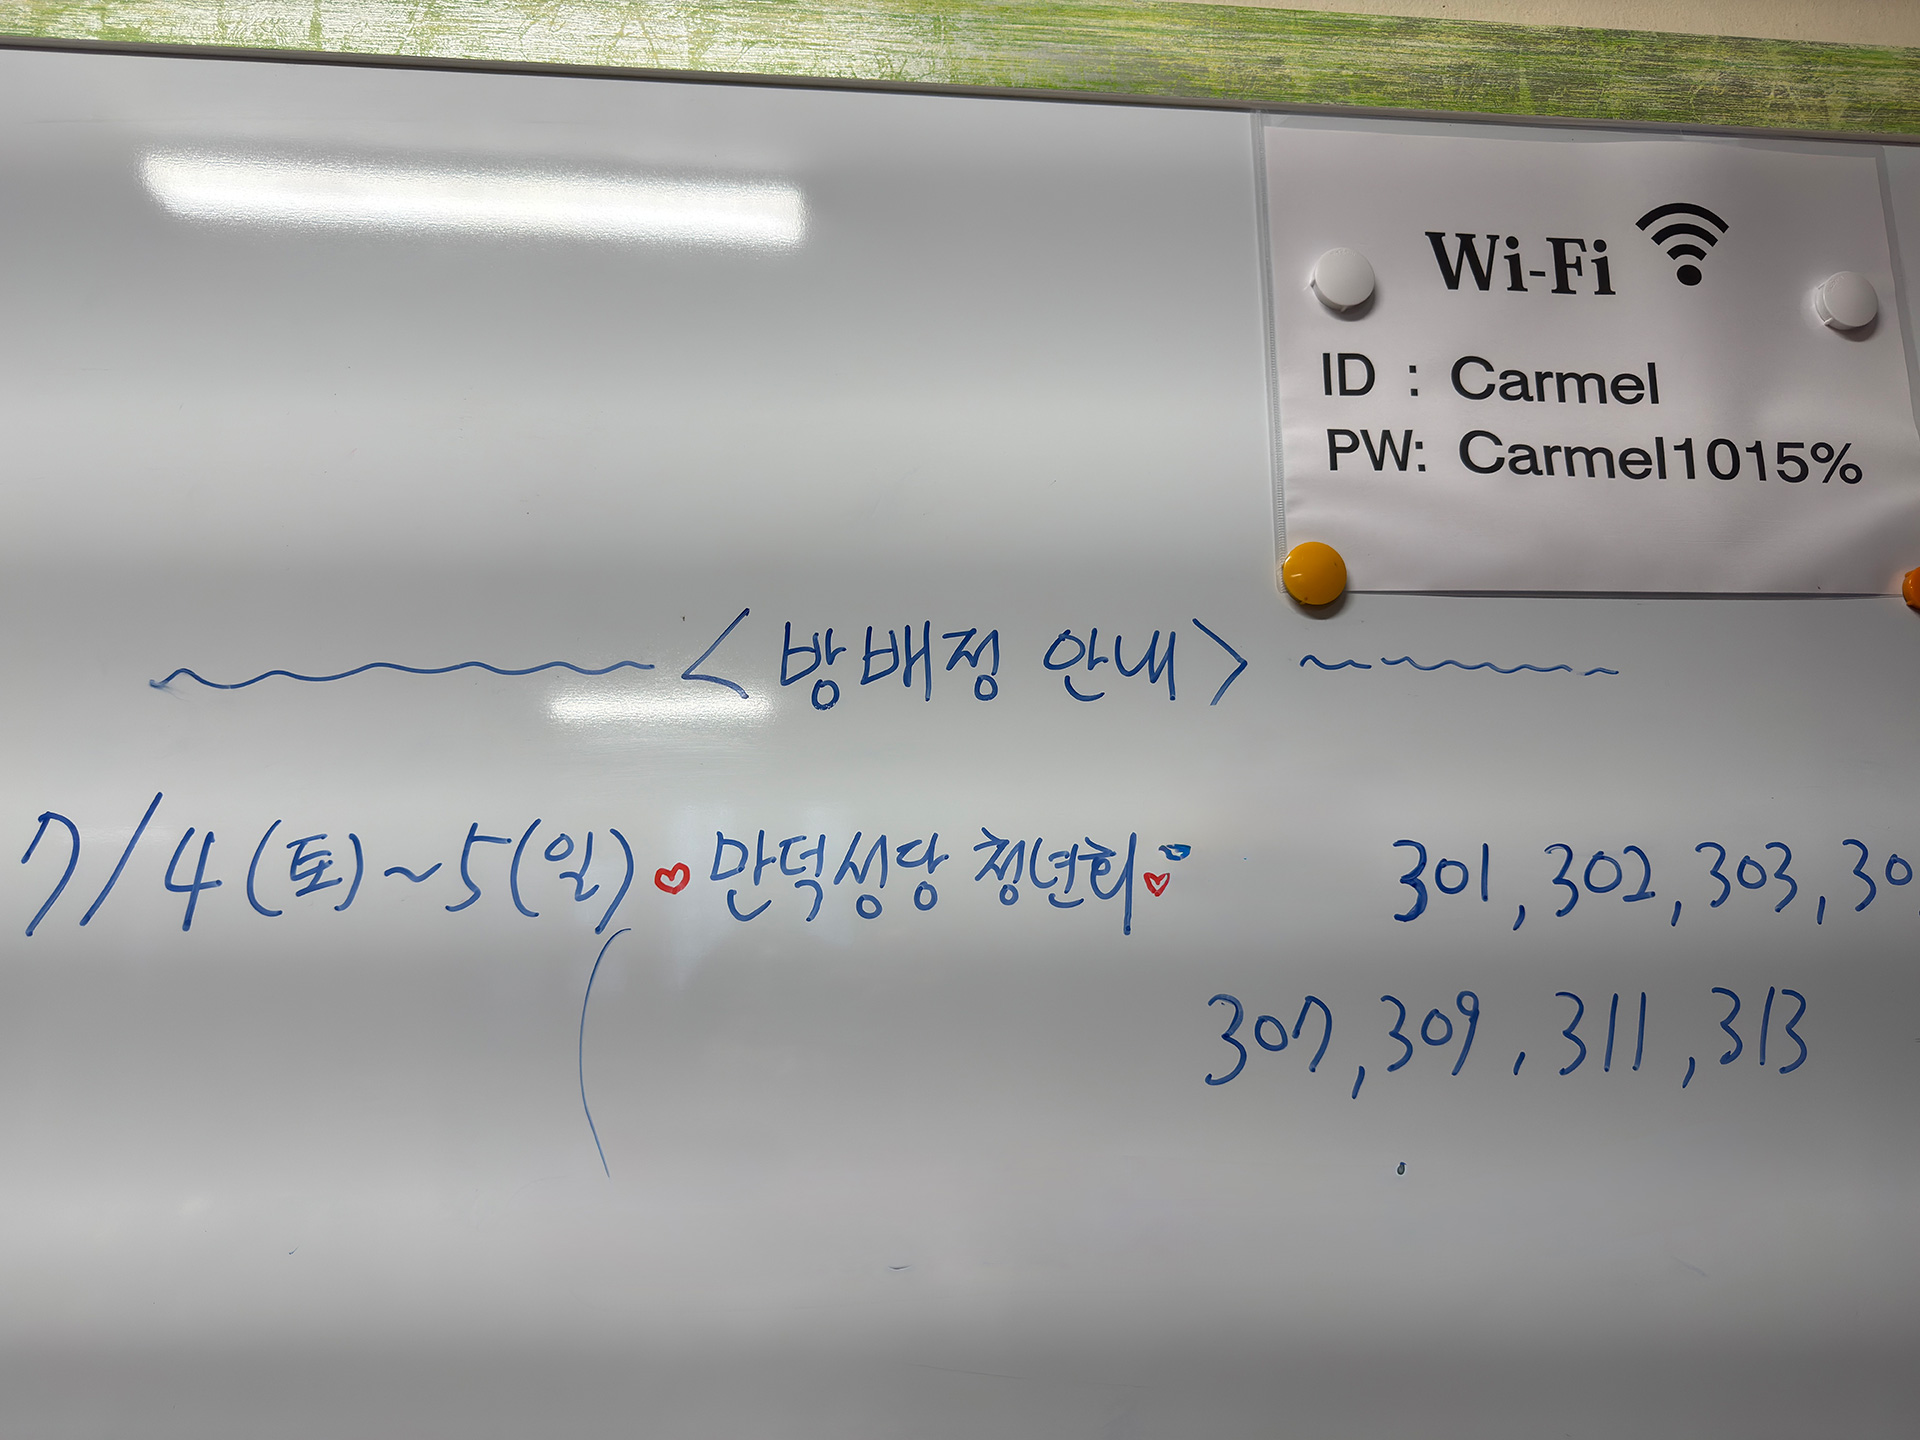 Wi-Fi
ID : Carmel
PW: Carmel1015%
<방배정 안내>
7/4(토)~5(일) 만덕성당 청년회 301, 302, 303,
307, 309, 311, 313